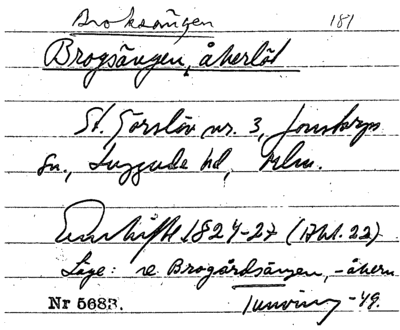 Broksängen 181
Brogsängen, åkerlöt
St. Görslöv nr. 3, Jonstorps
sn., Luggude hd, Mlm.
Enskifte 1824-27 (Akt. 22)
Läge: se Brogårdsängen, -åkern
Nr 5683. Tunving -49.